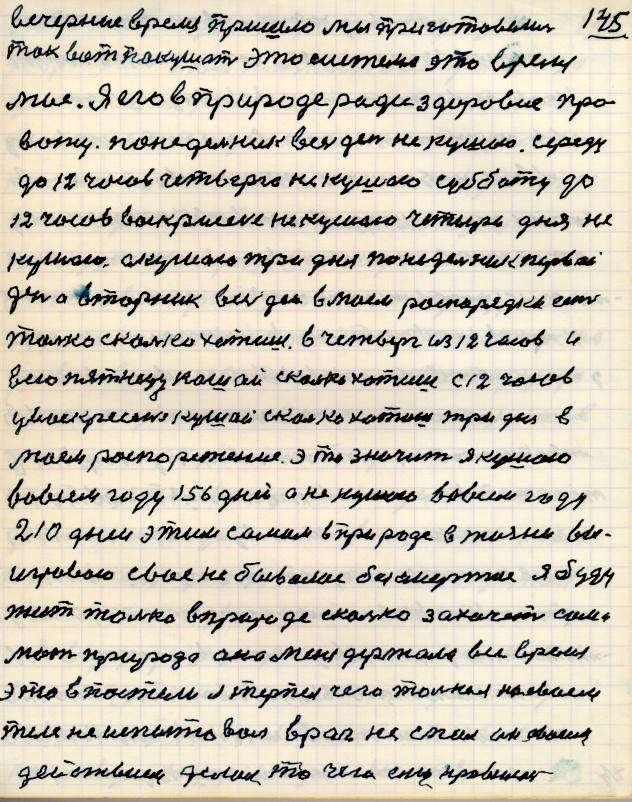 вечерние время пришло мы приготовелис 175
так вот покушат это системе это время
мое. Я его в природе ради здоровие про-
вожу. понеделник вес ден не кушаю. середу
до 12 часов четверга не кушаю субботу до
12 часов васкрисене не кушаю четыре дня не
кушаю. а кушаю три дня понеделник первый
ден а вторник вес ден в моем распорядке еш
толко сколко хотиш. в четверг из 12 часов и
всю пятницу кашай сколко хотиш с 12 часов
у васкресене кушай сколко хотиш три дня в
моем распорежение. это значит я кушаю
вовсем году 156 дней а не кушаю вовсем году
210 дней этим самим в природе в жизни вы-
игроваю свое не бывалое безмертие я буду
жит толко в природе сколко захачет сама
мат природа она меня держала все время
это в постели я терпел чего толко на своем
теле не испытовал враг не спал он своим
действием делал то чего ему нравилос